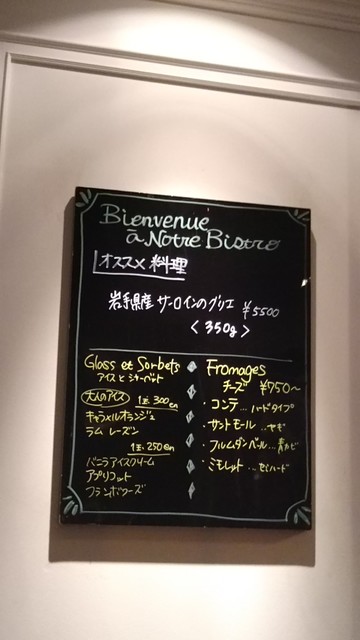 Bienvenue
à Notre Bistro
オススメ料理
岩手県産 サーロインのグリエ ¥5500
<350g>
Glass et Sorbets
アイスとシャーベット
大人のアイス 1玉 300en
キャラメルオランジュ
ラムレーズン
1玉 250en
バニラアイスクリーム
アプリコット
フランボワーズ
Fromages
チーズ ¥750〜
・コンテ...ハードタイプ
・サントモール...ヤギ
・フルムダンベール...青カビ
・ミモレット...セミハード